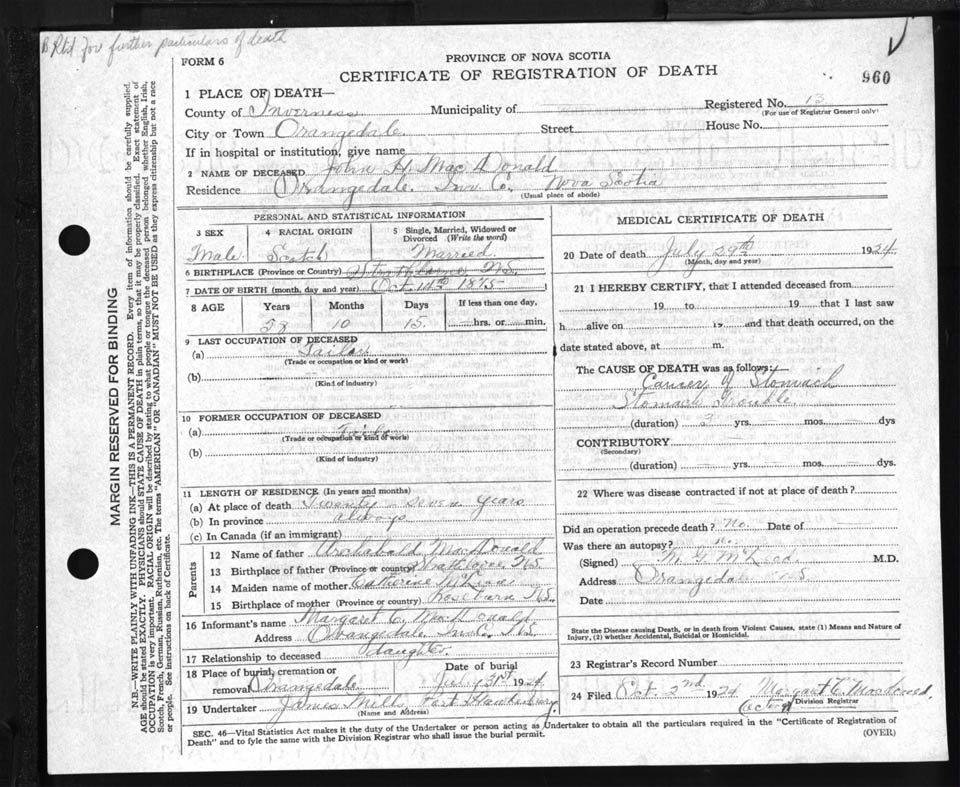 B Rtd for further particulars of death
FORM 6
PROVINCE OF NOVA SCOTIA
CERTIFICATE OF REGISTRATION OF DEATH
960
1 PLACE OF DEATH—
County of Inverness Municipality of
Registered No. 13
(For use of Registrar General only)
City or Town Orangedale Street House No.
If in hospital or institution, give name
2 NAME OF DECEASED John H. Mac Donald
Residence Orangedale Inv. Co. Nova Scotia
(Usual place of abode)
PERSONAL AND STATISTICAL INFORMATION
3 SEX 4 RACIAL ORIGIN 5 Single, Married, Widowed or Divorced (Write the word)
Male Scotch Married
6 BIRTHPLACE (Province or Country) N.S.
7 DATE OF BIRTH (month, day and year) Oct 14th 1875
8 AGE Years Months Days If less than one day,
58 10 15 hrs. or min.
9 LAST OCCUPATION OF DECEASED
(a) Tailor
(Trade or occupation or kind of work)
(b)
(Kind of industry)
10 FORMER OCCUPATION OF DECEASED
(a) Tailor
(Trade or occupation or kind of work)
(b)
(Kind of industry)
11 LENGTH OF RESIDENCE (In years and months)
(a) At place of death Twenty seven years
(b) In province always
(c) In Canada (if an immigrant)
Parents
12 Name of father Archabald MacDonald
13 Birthplace of father (Province or country) N.S.
14 Maiden name of mother Catherine
15 Birthplace of mother (Province or country) N.S.
16 Informant's name Margaret C. MacDonald
Address Orangedale Inv. C. N.S.
17 Relationship to deceased daughter
18 Place of burial, cremation or removal Orangedale Date of burial July 31st 1924
19 Undertaker James Mills Port Hawkesbury
(Name and Address)
MEDICAL CERTIFICATE OF DEATH
20 Date of death July 29th 1924
(Month, day and year)
21 I HEREBY CERTIFY, that I attended deceased from
19 to 19 that I last saw
h alive on 19 and that death occurred, on the
date stated above, at m.
The CAUSE OF DEATH was as follows:—
Cancer of Stomach
Stomach Trouble
(duration) 3 yrs. mos. dys
CONTRIBUTORY
(Secondary)
(duration) yrs. mos. dys.
22 Where was disease contracted if not at place of death?
Did an operation precede death? No. Date of
Was there an autopsy? no.
(Signed) M. G. McLeod M.D.
Address Orangedale N.S.
Date
State the Disease causing Death, or in death from Violent Causes, state (1) Means and Nature of Injury, (2) whether Accidental, Suicidal or Homicidal.
23 Registrar's Record Number
24 Filed Oct. 2nd 1924 Margaret C. MacDonald
(acting) Division Registrar
SEC. 46—Vital Statistics Act makes it the duty of the Undertaker or person acting as Undertaker to obtain all the particulars required in the "Certificate of Registration of
Death" and to fyle the same with the Division Registrar who shall issue the burial permit.
(OVER)
MARGIN RESERVED FOR BINDING
N.B.—WRITE PLAINLY WITH UNFADING INK—THIS IS A PERMANENT RECORD. Every item of information should be carefully supplied.
AGE should be stated EXACTLY. PHYSICIANS should STATE CAUSE OF DEATH in plain terms, so that it may be properly classified. Exact statement of
OCCUPATION is very important. RACIAL ORIGIN will be described by stating to what people or tongue the deceased person belonged whether English, Irish,
Scotch, French, German, Russian, Ruthenian, etc. The terms "AMERICAN" OR "CANADIAN" MUST NOT BE USED as they express citizenship but not a race
or people. See instructions on back of Certificate.